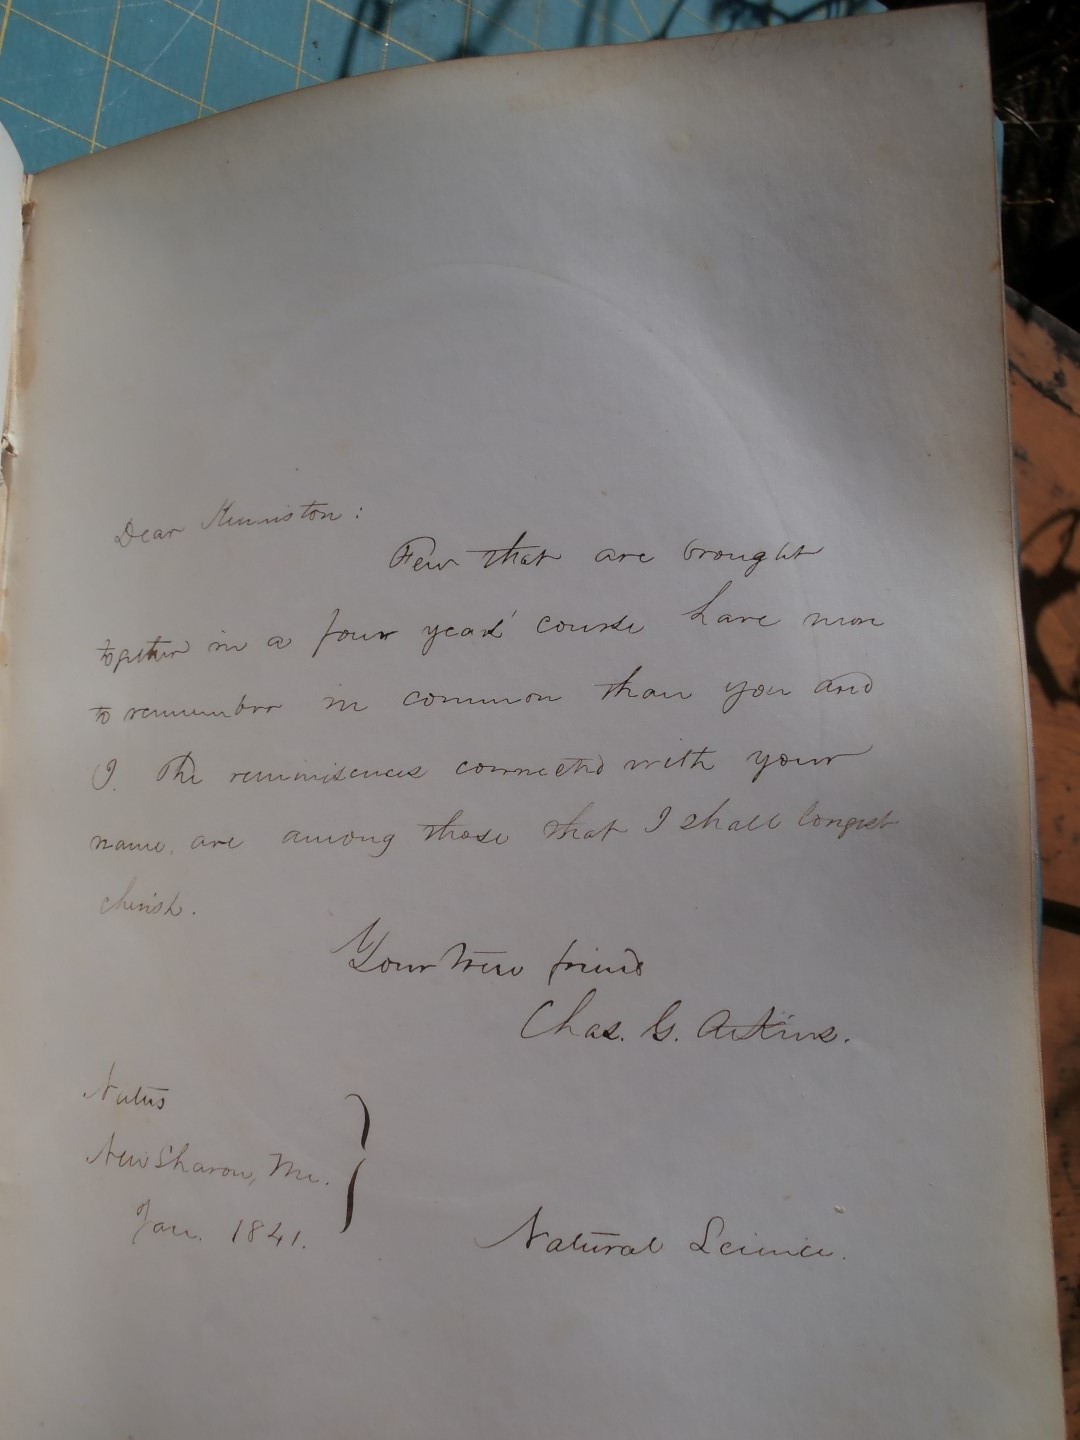 Dear Kenniston:
Few that are brought
together in a four years' course have more
to remember in common than you and
I. The reminiscences connected with your
name, are among those that I shall longest
cherish.
Your true friend
Chas. G. Atkins.
Natus
New Sharon, Me.
Jan. 1841.
Natural Science.